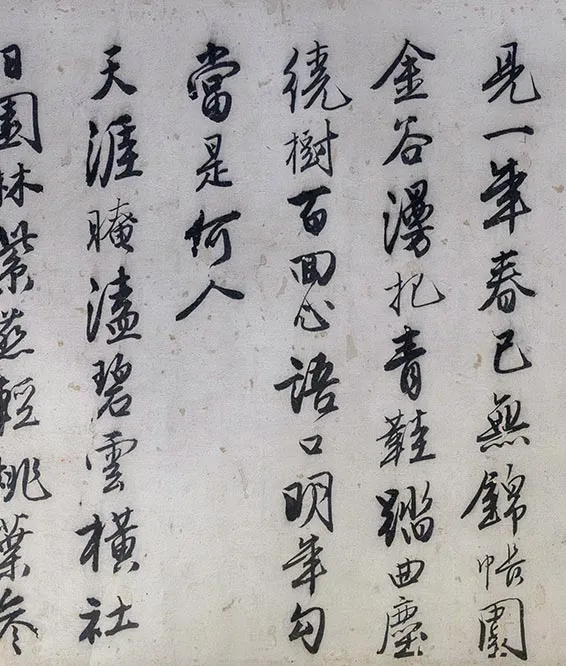 見一年春已無錦帳圍
金谷漫把青鞋踏曲塵
繞樹百回心語口明年勾
當是何人
天涯晻溘碧雲橫社
日園林紫燕輕桃葉參